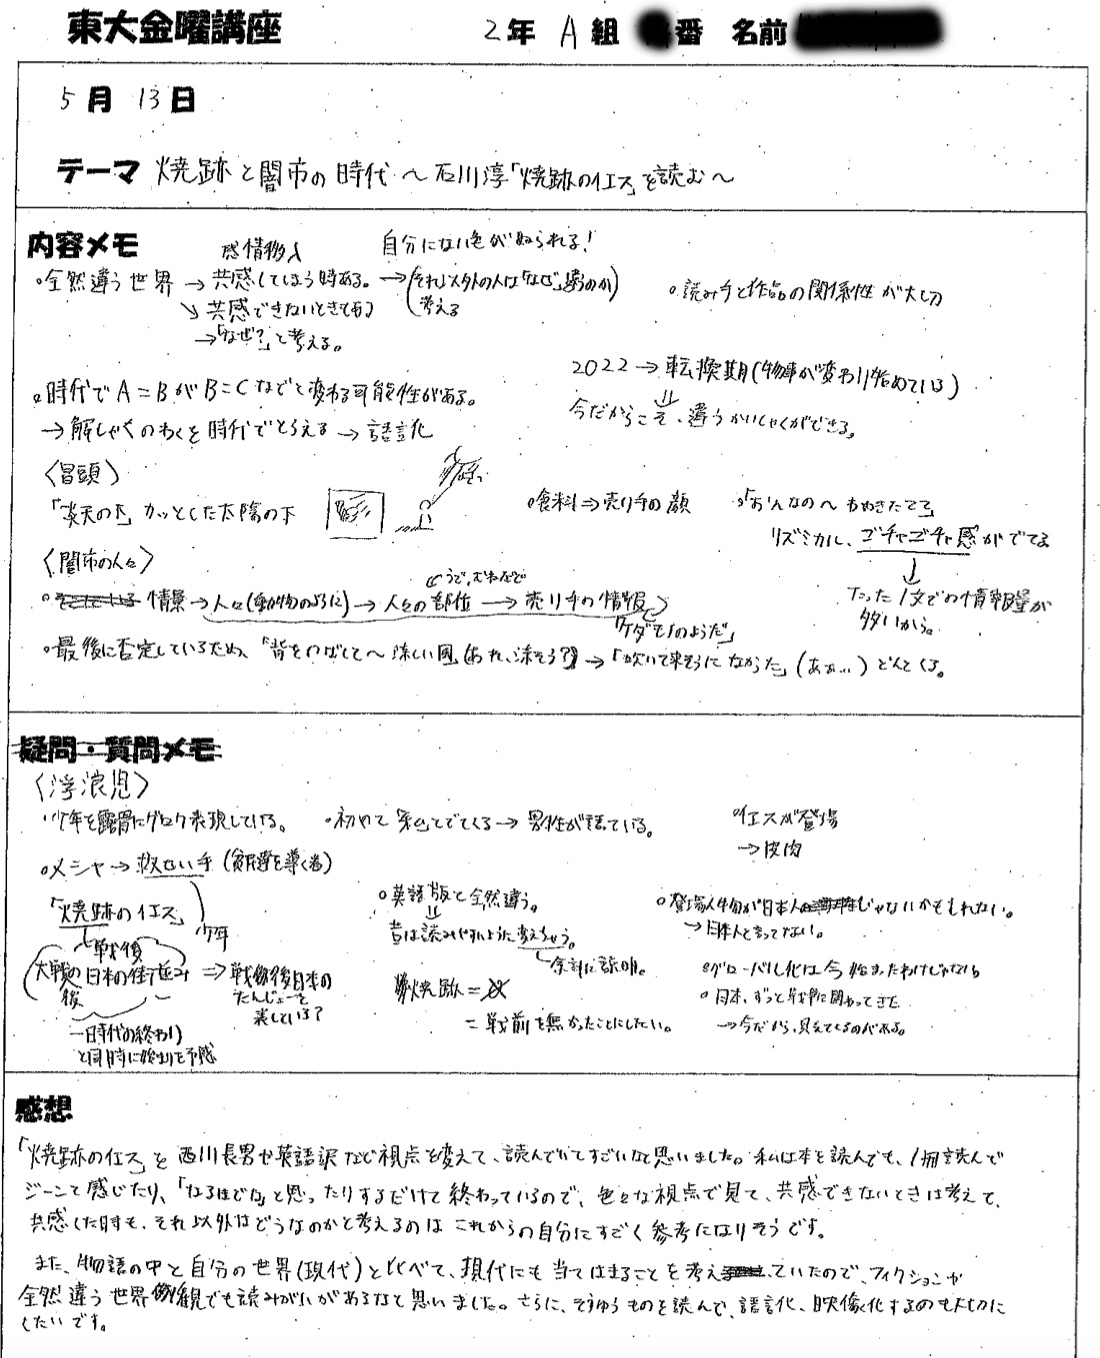 東大金曜講座
2年 A組 番 名前
5月 13日
テーマ 焼跡と闇市の時代 〜石川淳「焼跡のイエス」を読む〜
内容メモ
感情移入
自分にない色がぬられる!
。全然違う世界 → 共感してしまう時ある。→(それ以外の人は「なぜ」違うのか
考える)
↘ 共感できないときである
→「なぜ?」と考える。
。読み手と作品の関係性が大切
。時代でA=BがB=Cなどと変わる可能性がある。
→ 解しゃくのわくを時代でとらえる → 言語化
2022 → 転換期(物事が変わり始めている)
⇓
今だからこそ、違うかいしゃくができる。
〈冒頭〉
「炎天の下」カッとした太陽の下
。食料⇒売り手の顔
リズミカル、ゴチャゴチャ感がでてる
↓
たった1文での情報量が
多いから。
〈闇市の人々〉
うで、むねなど
。情景→人々(動物のように)→人々の部位→売り手の情報
「ケダモノのようだ」
。最後に否定しているため、「背をのばして〜涼しい風」(あれ、涼そう?)→「吹いて来そうになかった」(あぁ...)どんとくる。
疑問・質問メモ
〈浮浪児〉
。少年を露骨にグロク表現している。
。初めて「私」とでてくる→男性が語ている。
。イエスが登場
→皮肉
。メシヤ→救せい手(貧民層を導く者)
少年
「焼跡のイエス」
戦後
(大戦の後)
日本の街並み
⇒戦後日本の
たんじょーを
表している?
一時代の終わり
と同時に始まりを予感
。英語版と全然違う。
||
昔は読みやすいように変えちゃう。
余計に説明。
焼跡=
=戦前を無かったことにしたい。
。登場人物が日本人じゃないかもしれない。
→日本人と言ってない。
。グローバル化は今始まったわけじゃない
。日本、ずっと戦争に関わってきた
→今だから、見えてくるのがある。
感想
「焼跡のイエス」を西川長男や英語訳など視点を変えて、読んでいてすごいなと思いました。私は本を読んでも、1冊読んで
ジーンと感じたり、「なるほどな」と思ったりするだけで終わっているので、色々な視点で見て、共感できないときは考えて、
共感した時も、それ以外はどうなのかと考えるのはこれからの自分にすごく参考になりそうです。
また、物語の中と自分の世界(現代)と比べて、現代にも当てはまることを考えていたので、フィクションが
全然違う世界観でも読みがいがあるなと思いました。さらに、そうゆうものを読んで、言語化、映像化するのも大切に
したいです。